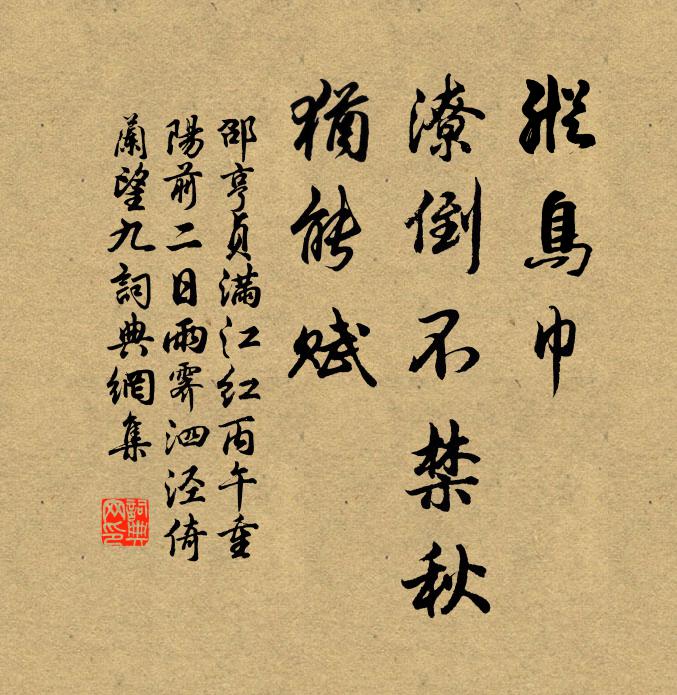 縱烏巾
潦倒不禁秋
猶能賦
邵亨貞滿江紅丙午重
陽前二日雨霽泗涇倚
蘭望九詞典網集
詞典
网印